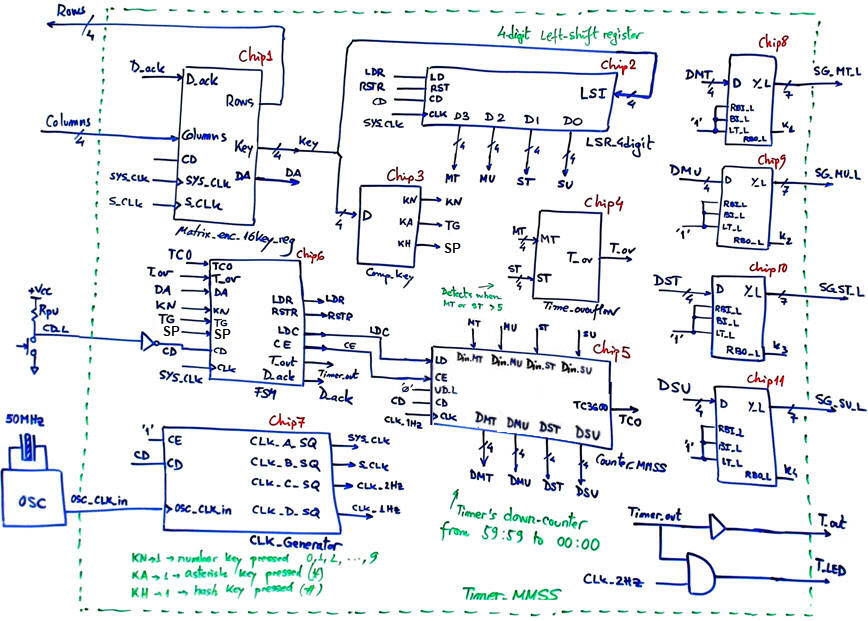 Rows
4
D_ack
Columns
4
SYS_CLK
S_CLK
Chip1
D_ack
Rows
Columns
Key
CD
SYS_CLK
DA
S_CLK
Matrix_enc_16key_reg
4
Key
DA
4-digit Left-shift register
Chip2
LDR
RSTR
CD
SYS_CLK
LD
RST
CD
CLK
LSI
4
D3 D2 D1 D0
4 4 4 4
MT MU ST SU
LSR_4digit
Chip3
4
D
KN
KA
KH
KN
TG
SP
Comp_key
Chip4
MT
4
ST
4
MT
ST
T_ov
T_ov
Time_overflow
Detects when
MT or ST > 5
Chip6
TCO
T_ov
DA
KN
TG
SP
CD
SYS_CLK
TCO
T_ov
DA
KN
TG
SP
CD
CLK
LDR
RSTR
LDC
CE
T_out
D_ack
FSM
LDR
RSTR
LDC
CE
Timer_out
D_ack
+Vcc
Rpu
CD_L
MT MU ST SU
Chip5
'0'
CD
CLK_1Hz
LD
CE
UD_L
CD
CLK
Din_MT Din_MU Din_ST Din_SU
TC3600
TCO
DMT DMU DST DSU
4 4 4 4
DMT DMU DST DSU
Counter_MMSS
Timer's down-counter
from 59:59 to 00:00
50MHz
OSC
OSC_CLK_in
Chip7
'1'
CD
CE
CD
OSC_CLK_in
CLK_A_SQ
CLK_B_SQ
CLK_C_SQ
CLK_D_SQ
SYS_CLK
S_CLK
CLK_2Hz
CLK_1Hz
CLK_Generator
KN→1 → number key pressed 0,1,2, ...,9
KA → 1 → asterisk key pressed (*)
KH → 1 → hash key pressed (#)
Timer_MMSS
Chip8
DMT
4
'1'
D Y_L
RBI_L
BI_L
LT_L
RBO_L
7
SG_MT_L
K1
Chip9
DMU
4
'1'
D Y_L
RBI_L
BI_L
LT_L
RBO_L
7
SG_MU_L
K2
Chip10
DST
4
'1'
D Y_L
RBI_L
BI_L
LT_L
RBO_L
7
SG_ST_L
K3
Chip11
DSU
4
'1'
D Y_L
RBI_L
BI_L
LT_L
RBO_L
7
SG_SU_L
K4
Timer_out
T_out
CLK_2Hz
T_LED